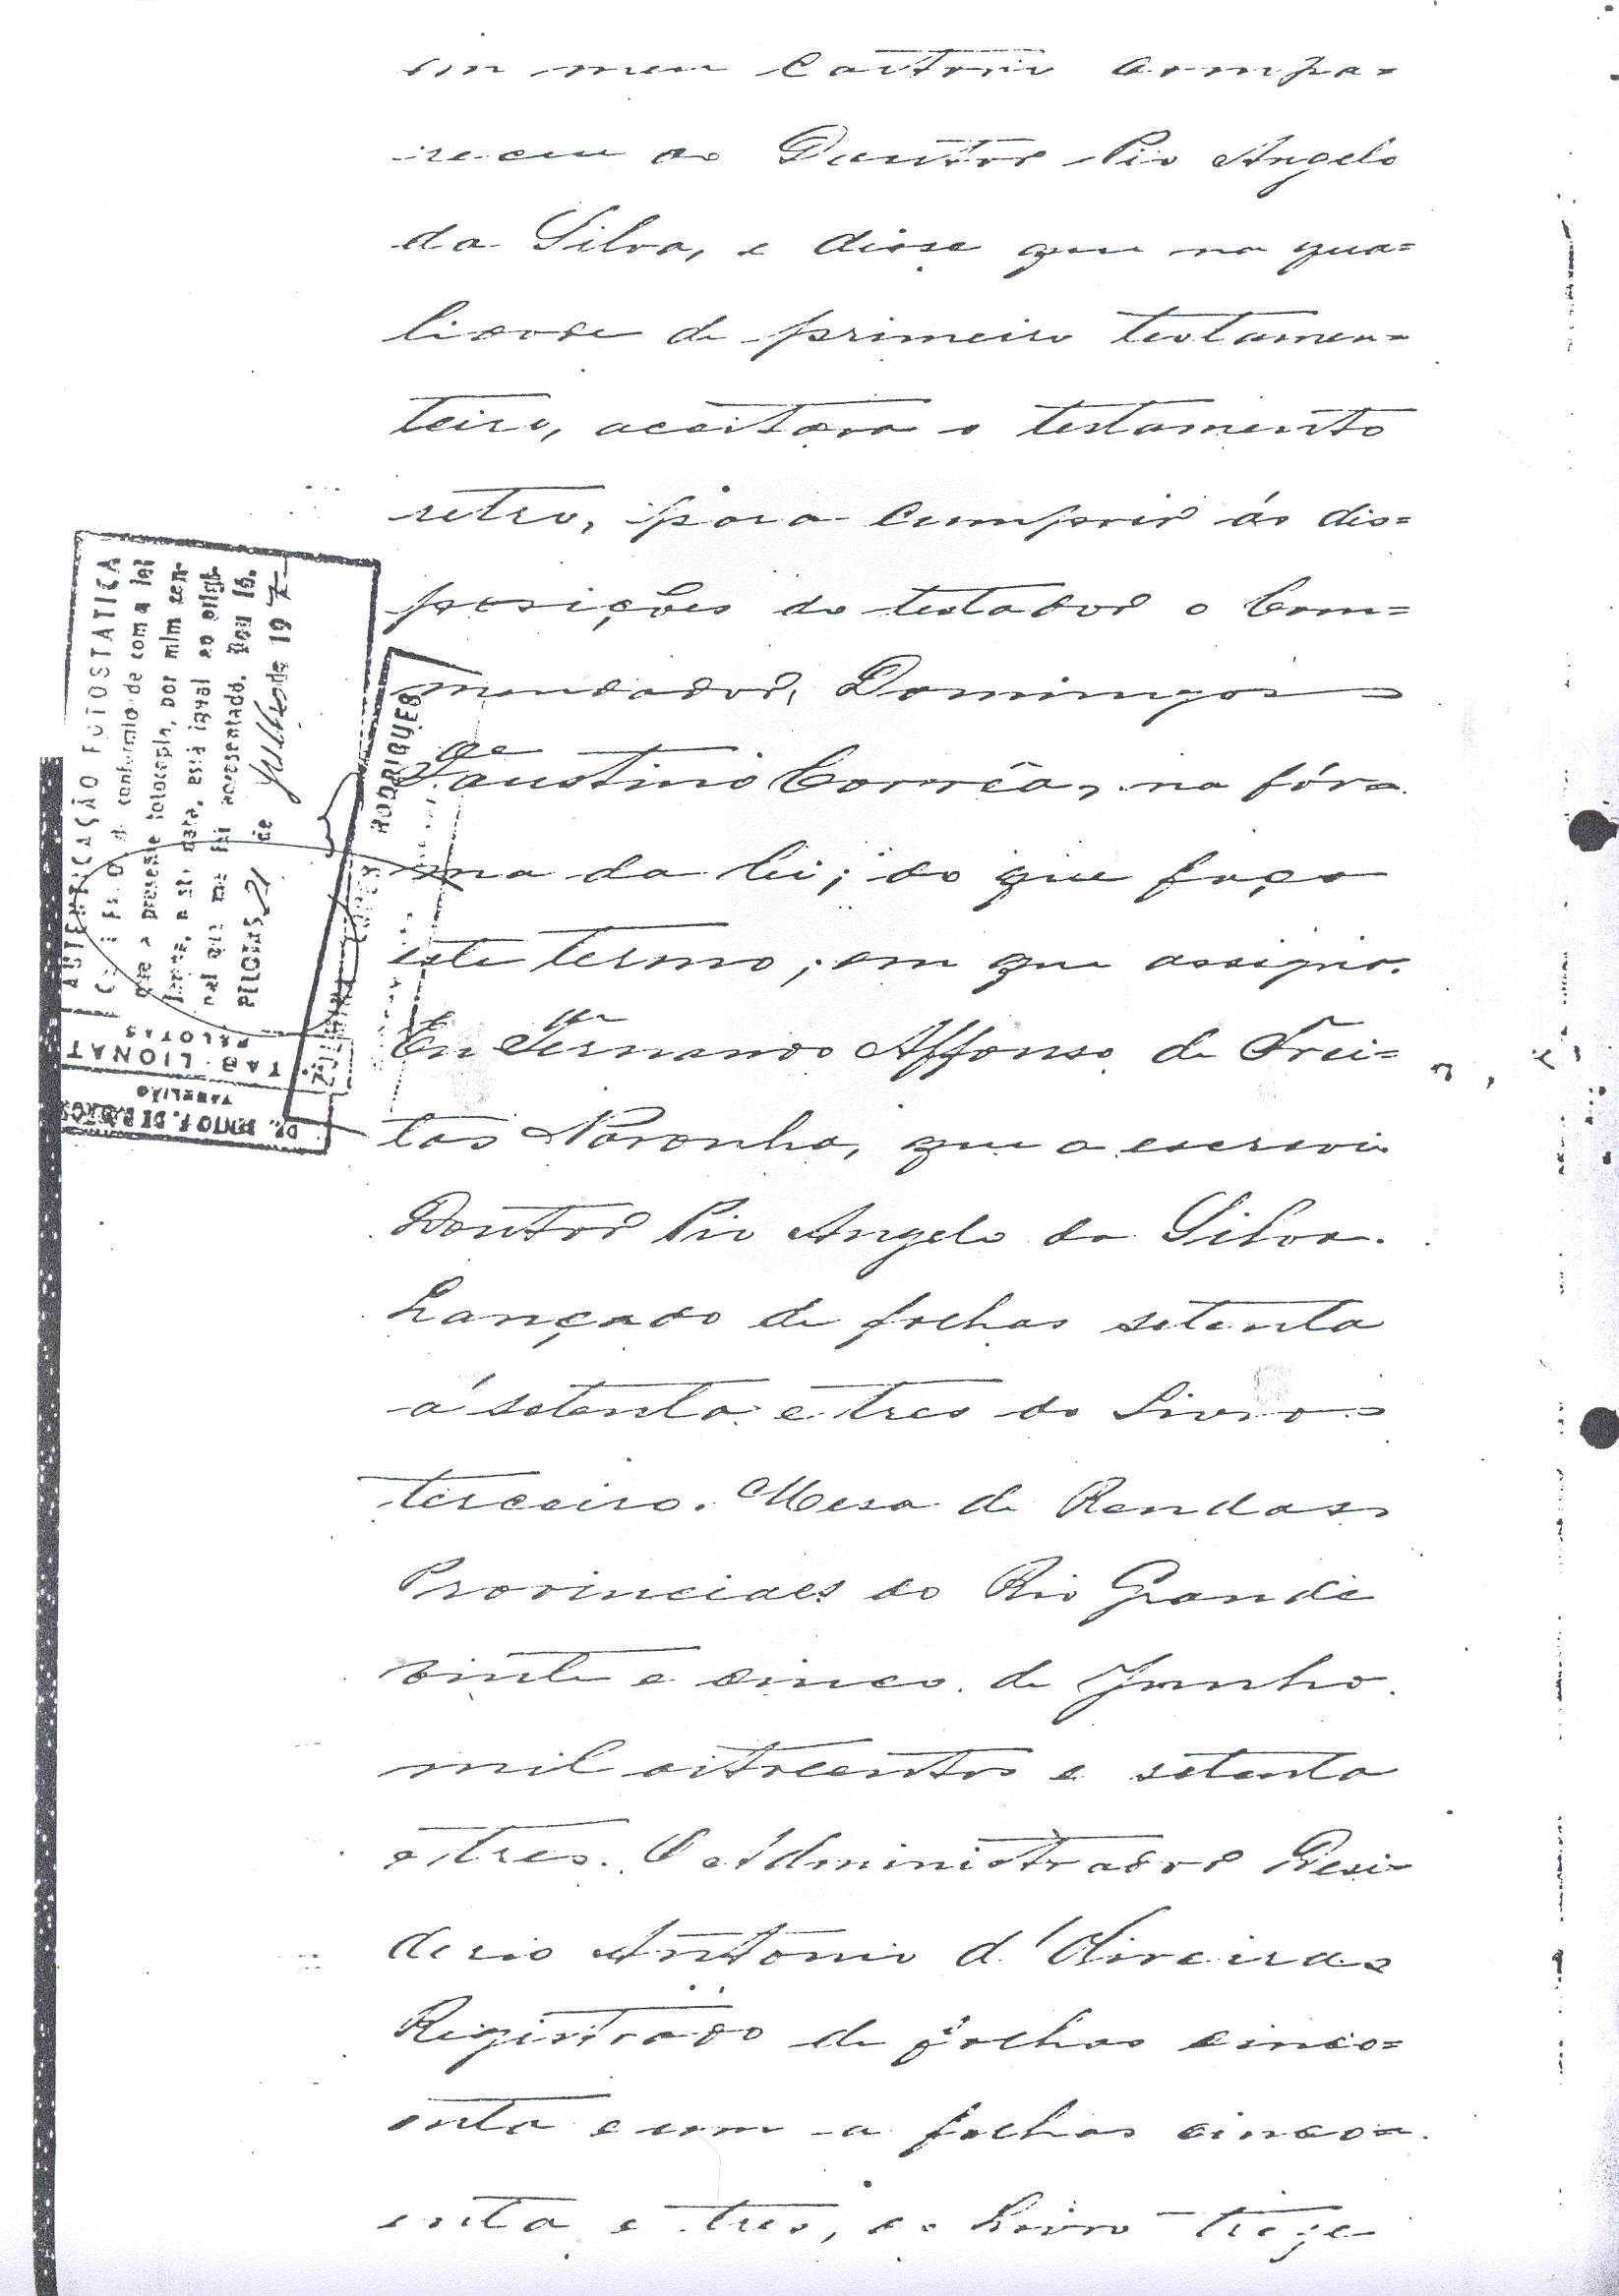 em meu Cartorio compa=
receu o Doutor Pio Angelo
da Silva, e disse que na qua=
lidade de primeiro testamen=
teiro, aceitava o testamento
retro, para cumprir ás dis=
posições do testador o Com=
mendador, Domingos
de
Faustino Corrêa, na fór=
ma da lei; do que faço
este termo, em que assigna.
Eu Fernando Affonso de Frei=
tas Noronha, que o escrevi
Doutor Pio Angelo da Silva.
Lançado de folhas setenta
á setenta e tres do Livro
terceiro. Mesa de Rendas
Provinciaes do Rio Grande
vinte e cinco de Junho
mil oitocentos e setenta
e tres. O Administrador Desi=
derio Antonio d'Oliveira
Registrado de folhas cinco=
enta e um a folhas cinco=
enta e tres, do Livro treze
AUTENTICAÇÃO FOTOSTATICA
de com a lei
que a presente fotocopia, por mim con-
data, está igual ao origi-
nal que me foi apresentado. Dou fé.
PELOTAS 21 de Julho de 197
TABELIONAT
PELOTAS
DR. BENTO F. DE BARROS
TABELIÃO
RODRIGUES